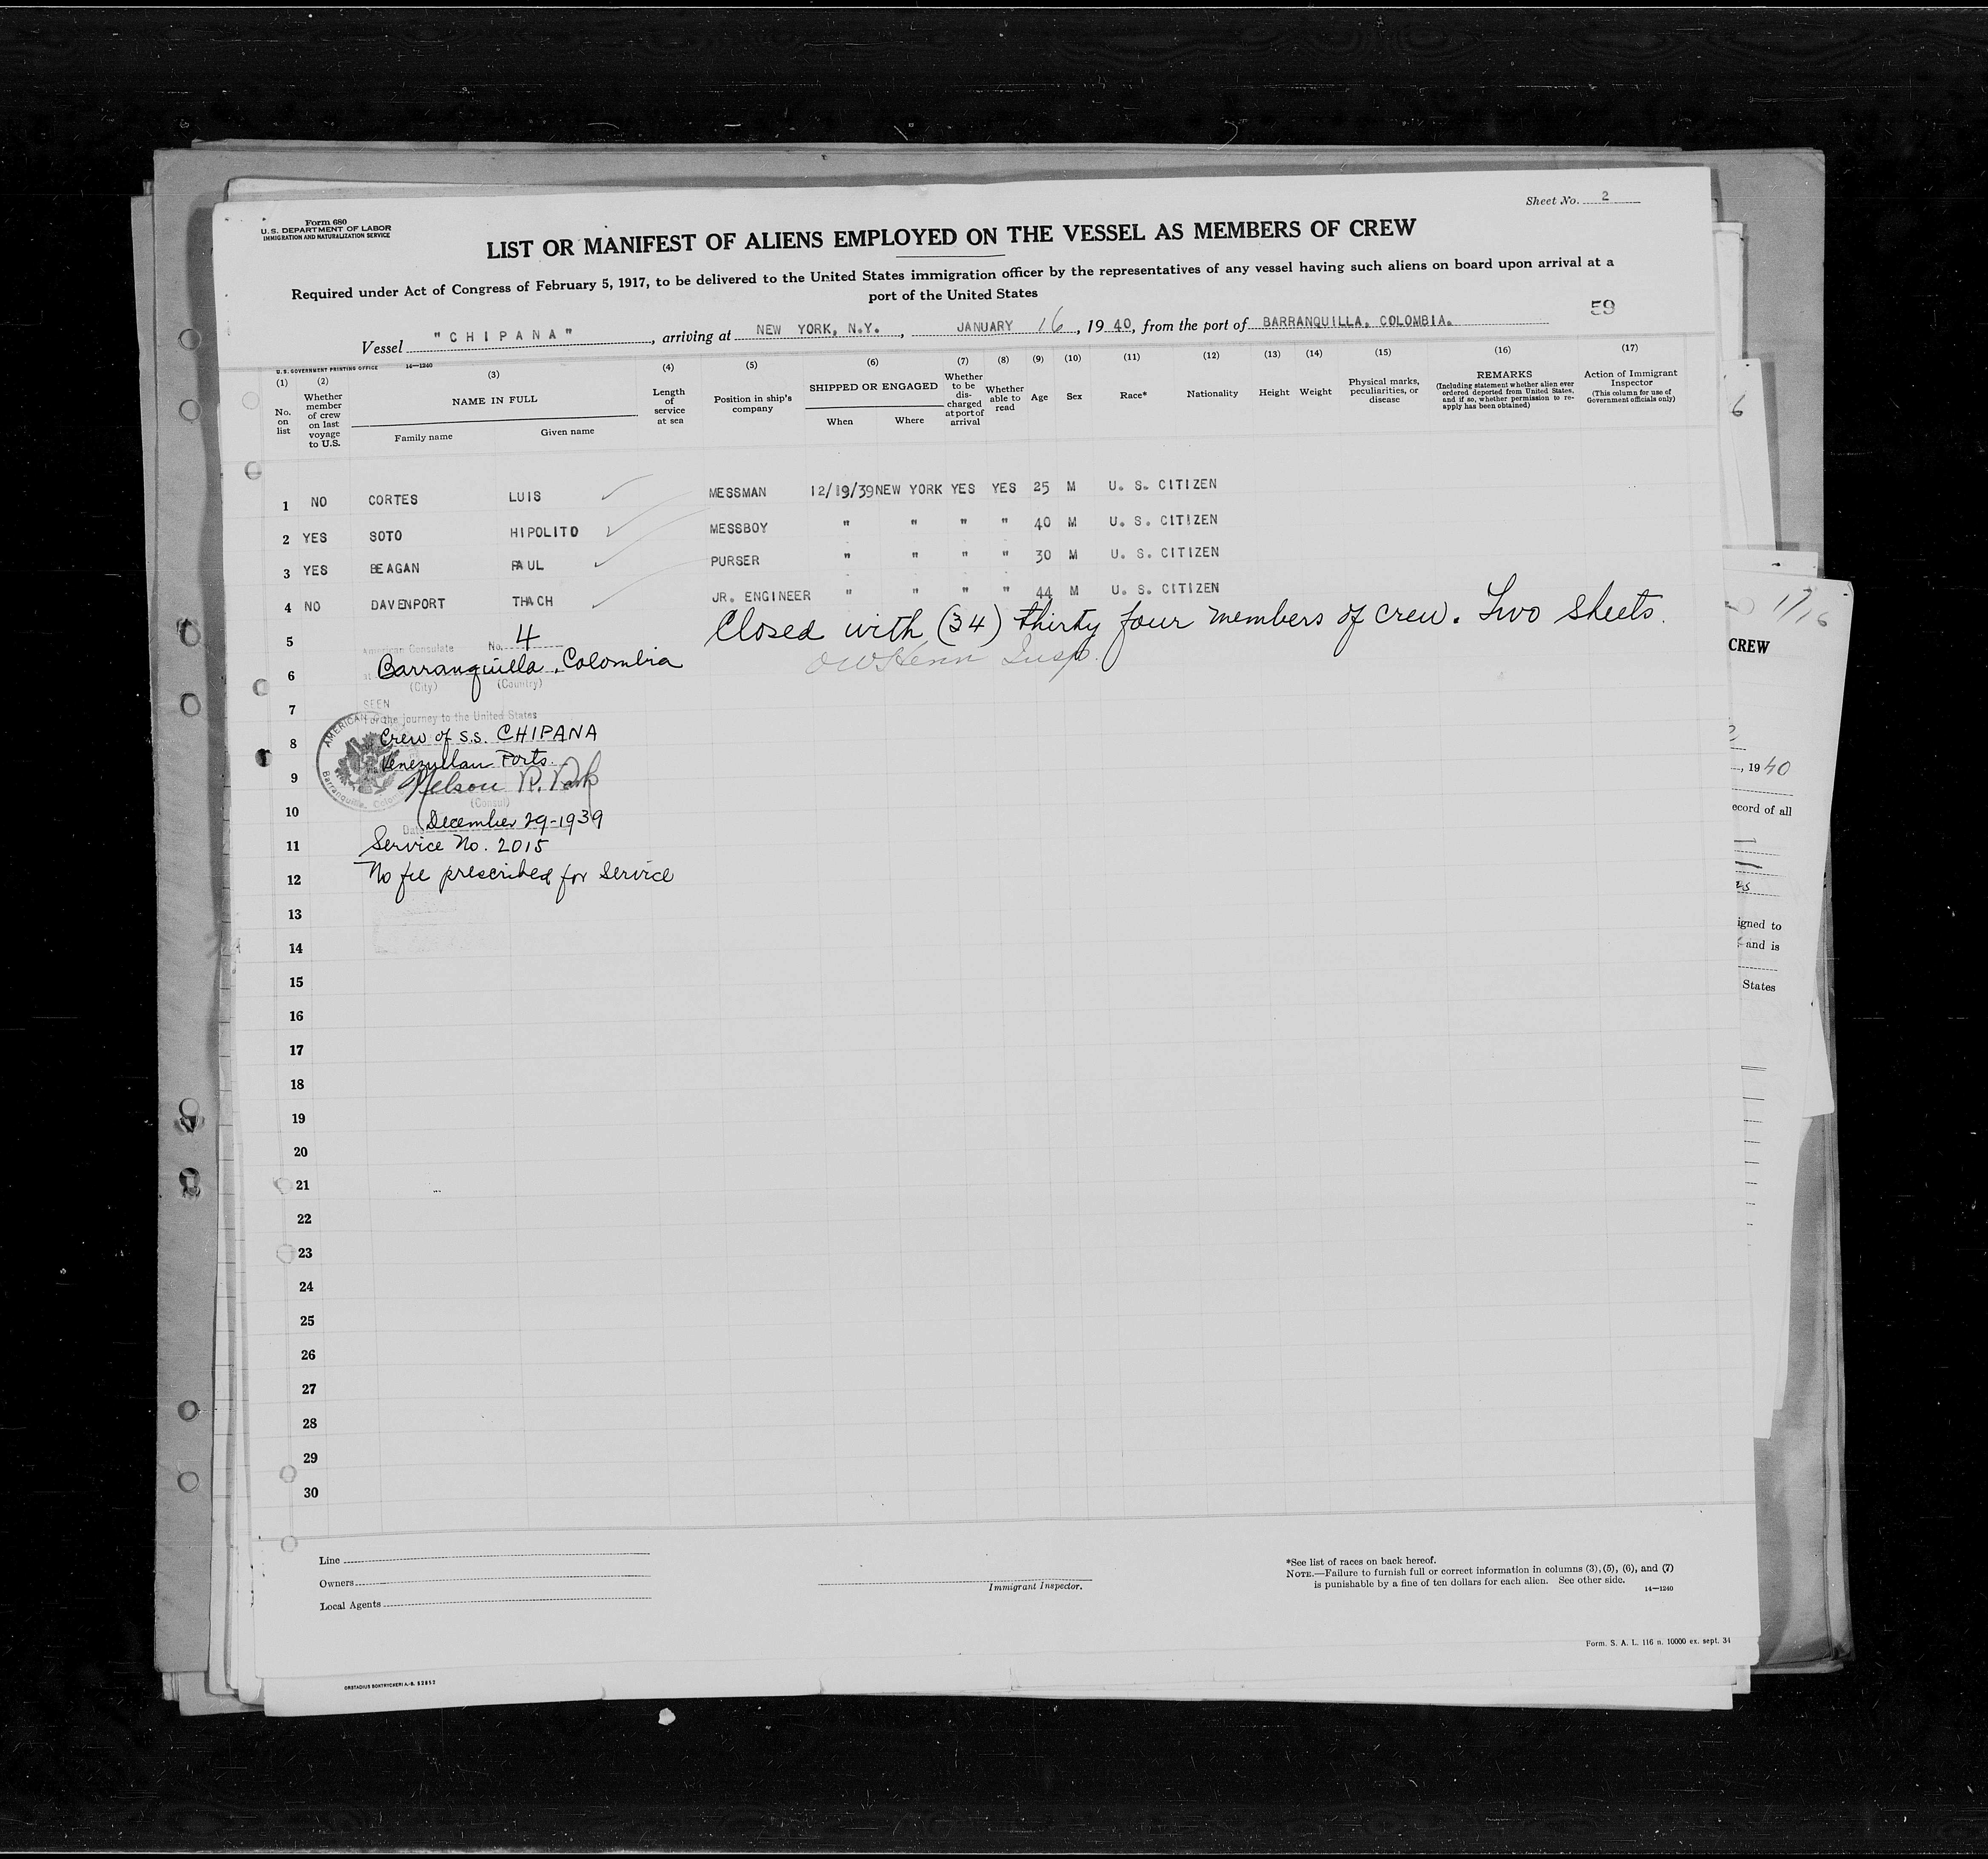 Form 680
U. S. DEPARTMENT OF LABOR
IMMIGRATION AND NATURALIZATION SERVICE
Sheet No. 2
LIST OR MANIFEST OF ALIENS EMPLOYED ON THE VESSEL AS MEMBERS OF CREW
Required under Act of Congress of February 5, 1917, to be delivered to the United States immigration officer by the representatives of any vessel having such aliens on board upon arrival at a
port of the United States
59
Vessel "CHIPANA", arriving at NEW YORK, N.Y., JANUARY 16, 1940, from the port of BARRANQUILLA, COLOMBIA.
U. S. GOVERNMENT PRINTING OFFICE 14—1240
(1) No. on list
(2) Whether member of crew on last voyage to U.S.
(3) NAME IN FULL
Family name Given name
(4) Length of service at sea
(5) Position in ship's company
(6) SHIPPED OR ENGAGED
When Where
(7) Whether to be discharged at port of arrival
(8) Whether able to read
(9) Age
(10) Sex
(11) Race*
(12) Nationality
(13) Height
(14) Weight
(15) Physical marks, peculiarities, or disease
(16) REMARKS
(Including statement whether alien ever ordered deported from United States, and if so, whether permission to reapply has been obtained)
(17) Action of Immigrant Inspector
(This column for use of Government officials only)
1 NO CORTES LUIS MESSMAN 12/19/39 NEW YORK YES YES 25 M U. S. CITIZEN
2 YES SOTO HIPOLITO MESSBOY " " " " 40 M U. S. CITIZEN
3 YES BEAGAN PAUL PURSER " " " " 30 M U. S. CITIZEN
4 NO DAVENPORT THACH JR. ENGINEER " " " " 44 M U. S. CITIZEN
5 American Consulate No. 4 Closed with (34) thirty four members of crew. Two sheets.
6 at Barranquilla, Colombia
(City) (Country)
7 SEEN
For the journey to the United States
8 Crew of S.S. CHIPANA
Venezuelan Ports
9 Nelson R. Park
(Consul)
10 Date December 29-1939
11 Service No. 2015
12 No fee prescribed for service
13
14
15
16
17
18
19
20
21
22
23
24
25
26
27
28
29
30
Line
Owners
Local Agents
Immigrant Inspector.
*See list of races on back hereof.
NOTE.—Failure to furnish full or correct information in columns (3), (5), (6), and (7)
is punishable by a fine of ten dollars for each alien. See other side.
14—1240
Form. S. A. L. 116 n. 10000 ex. sept. 34
6
CREW
, 1940
ecord of all
igned to
and is
States